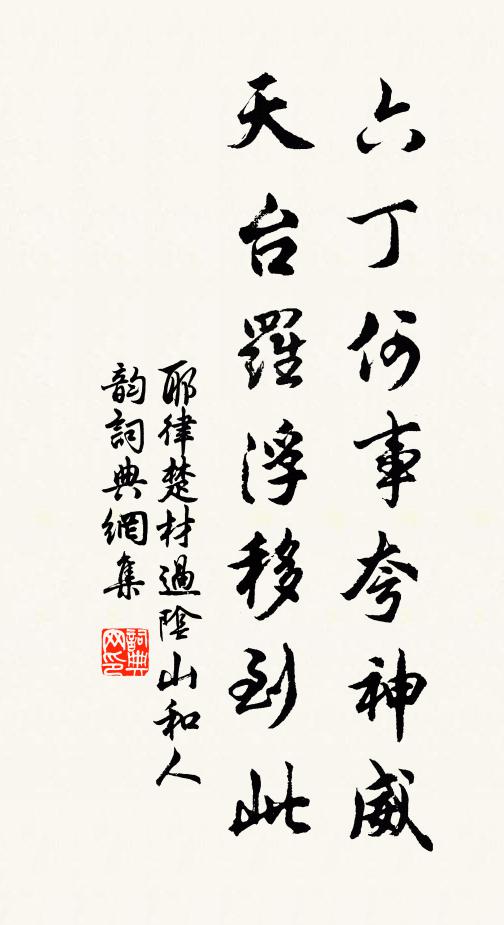 六丁何事夸神威
天台羅浮移到此
耶律楚材過陰山和人
韵詞典網集
詞典网印